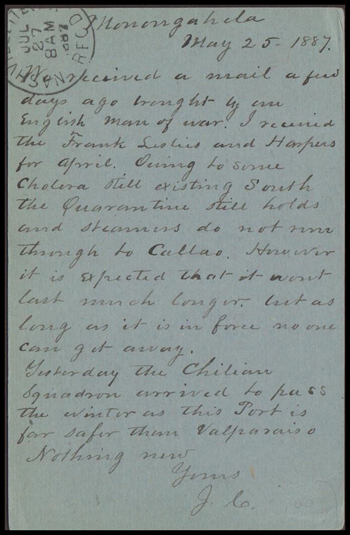 Monongahela
May 25-1887.
We received a mail a few
days ago brought by an
English man of war. I received
the Frank Leslies and Harpers
for April. Owing to some
Cholera still existing South
the Quarantine still holds
and steamers do not run
through to Callao. However
it is expected that it wont
last much longer. but as
long as it is in force no one
can get away.
Yesterday the Chilian
Squadron arrived to pass
the winter as this Port is
far safer than Valparaiso
Nothing new
Yours
J. C.
JUL
27
8AM
1887
REC'D